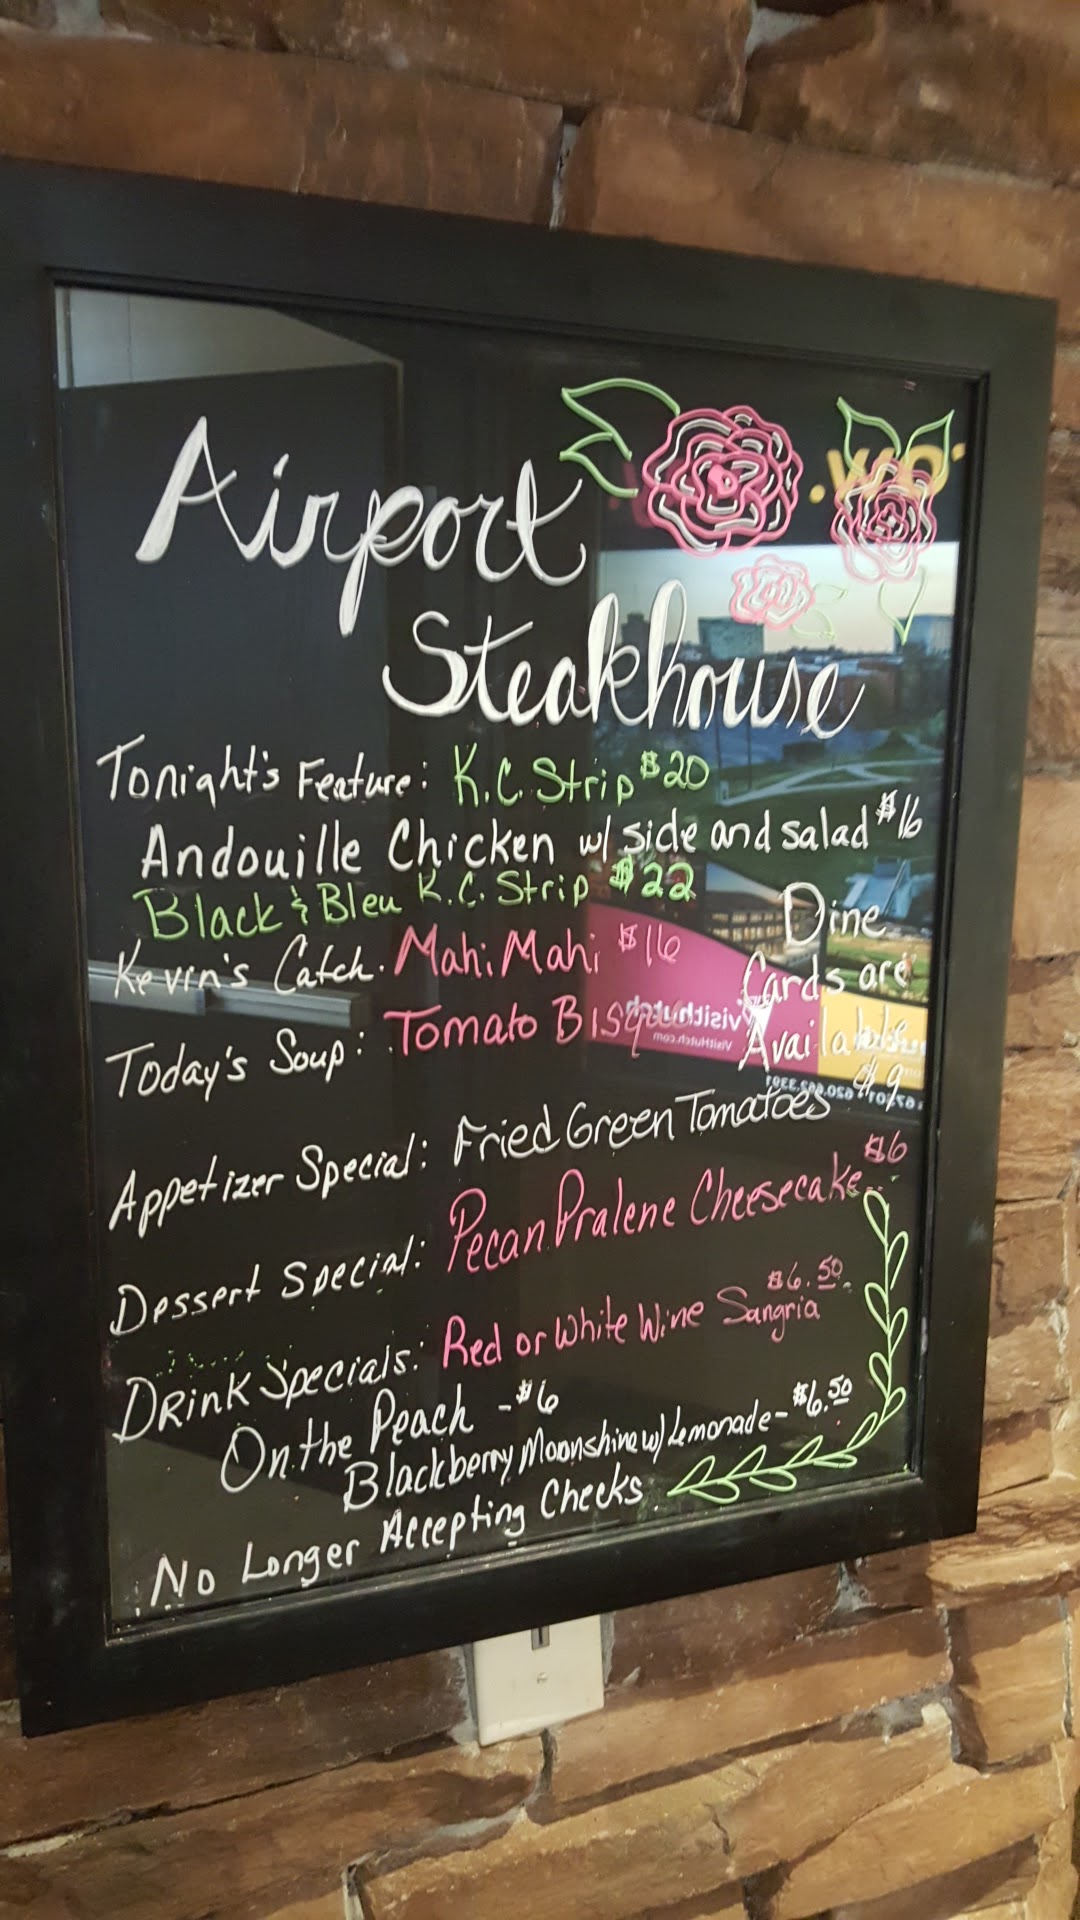 Airport
Steakhouse
Tonight's Feature: K.C. Strip $20
Andouille Chicken w/ side and salad $16
Black & Bleu K.C. Strip $22
Kevin's Catch. Mahi Mahi $16
Dine
Cards are
Available
Today's Soup: Tomato Bisque
Appetizer Special: Fried Green Tomatoes $9
Dessert Special: Pecan Pralene Cheesecake $6
Drink Specials: Red or White Wine Sangria $6.50
On the Peach - $6
Blackberry Moonshine w/ Lemonade - $6.50
No Longer Accepting Checks
visithutch
VisitHutch.com